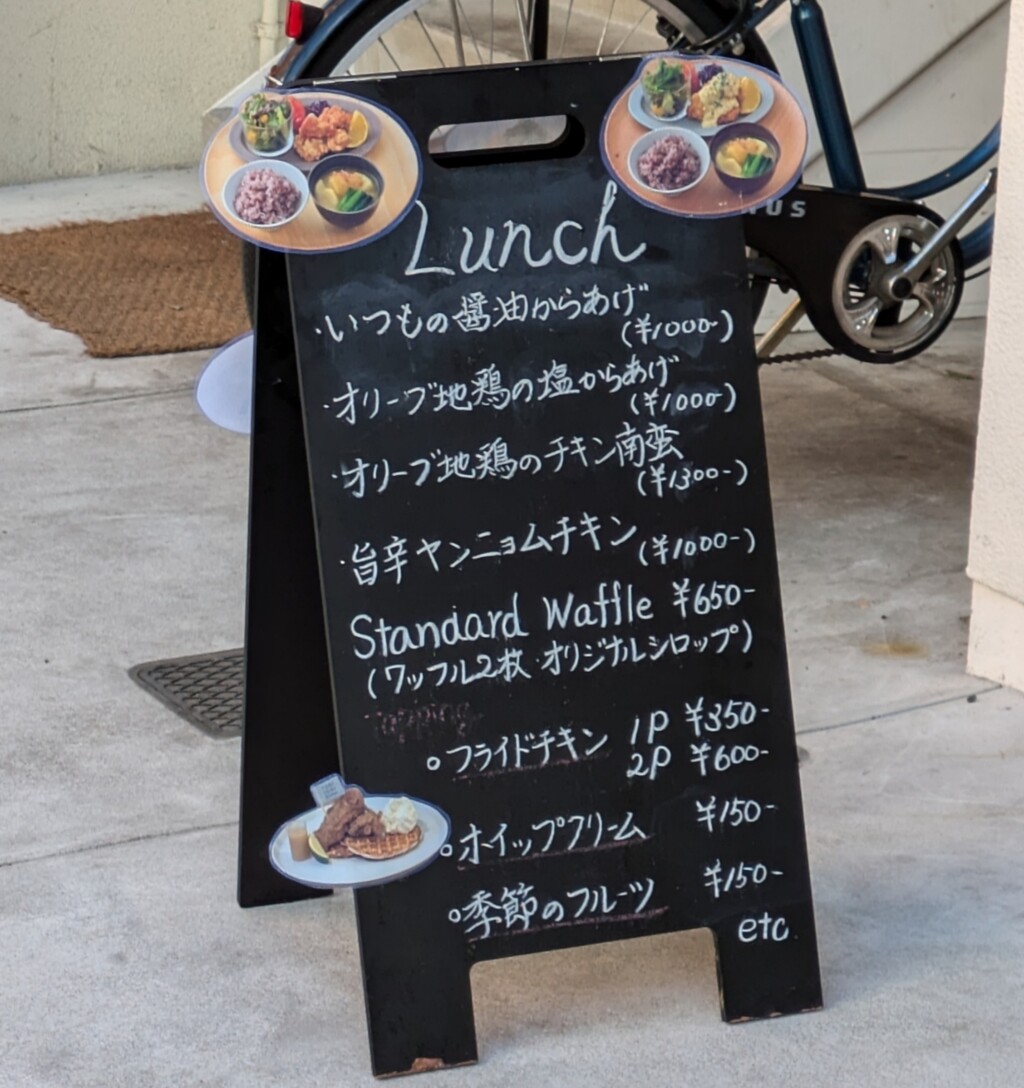 Lunch
・いつもの醤油からあげ
(¥1000-)
・オリーブ地鶏の塩からあげ
(¥1000-)
・オリーブ地鶏のチキン南蛮
(¥1300-)
・旨辛ヤンニョムチキン (¥1000-)
Standard Waffle ¥650-
(ワッフル2枚・オリジナルシロップ)
Topping
○フライドチキン 1P ¥350-
2P ¥600-
○ホイップクリーム ¥150-
○季節のフルーツ ¥150-
etc